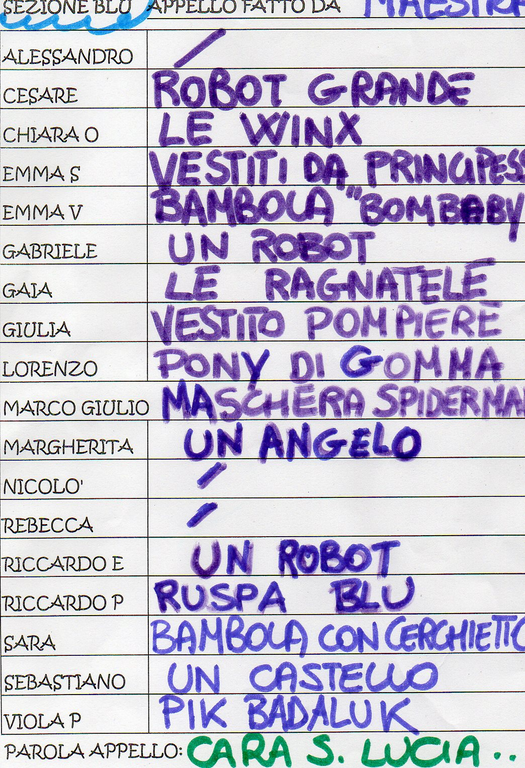 SEZIONE BLU APPELLO FATTO DA MAESTRA
ALESSANDRO /
CESARE ROBOT GRANDE
CHIARA O LE WINX
EMMA S VESTITI DA PRINCIPESS
EMMA V BAMBOLA "BOMBABY
GABRIELE UN ROBOT
GAIA LE RAGNATELE
GIULIA VESTITO POMPIERE
LORENZO PONY DI GOMMA
MARCO GIULIO MASCHERA SPIDERMA
MARGHERITA UN ANGELO
NICOLO' /
REBECCA /
RICCARDO E UN ROBOT
RICCARDO P RUSPA BLU
SARA BAMBOLA CON CERCHIETTO
SEBASTIANO UN CASTELLO
VIOLA P PIK BADALUK
PAROLA APPELLO: CARA S. LUCIA..